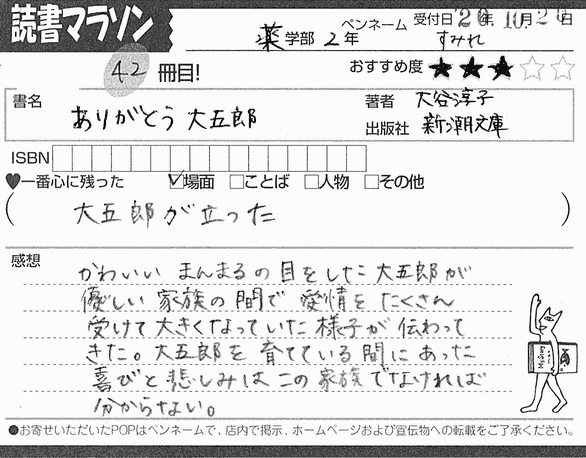 読書マラソン
薬学部 2年
ペンネーム すみれ
受付日 20年10月20日
42冊目!
おすすめ度 ★★★☆☆
書名 ありがとう 大五郎
著者 大谷淳子
出版社 新潮文庫
ISBN
♥一番心に残った ☑場面 □ことば □人物 □その他
(大五郎が立った)
感想
かわいい まんまるの目をした大五郎が
優しい家族の間で 愛情をたくさん
受けて大きくなっていた様子が伝わって
きた。大五郎を育てている間にあった
喜びと悲しみはこの家族でなければ
分からない。
●お寄せいただいたPOPはペンネームで、店内で掲示、ホームページおよび宣伝物への転載をご了承ください。